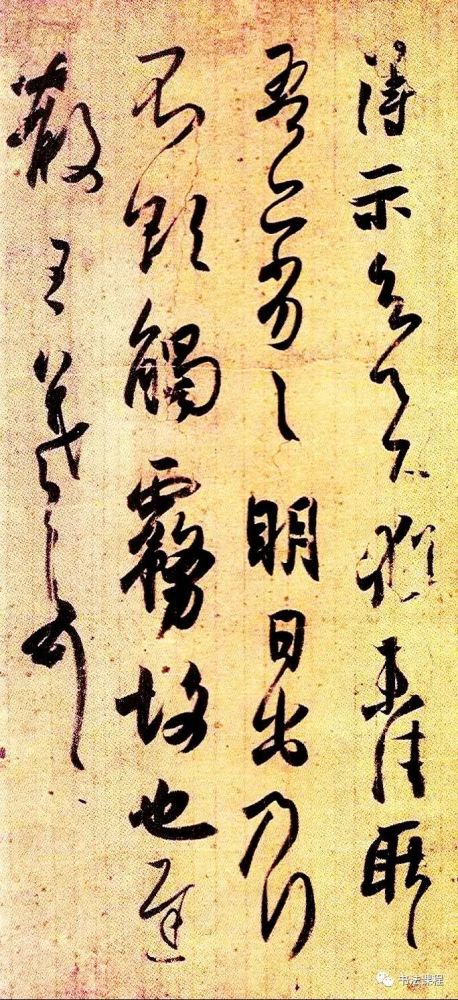 得示知足下猶未佳耿〻
吾亦劣〻明日出乃行
不欲觸霧故也遲
散王羲之頓首
书法課程